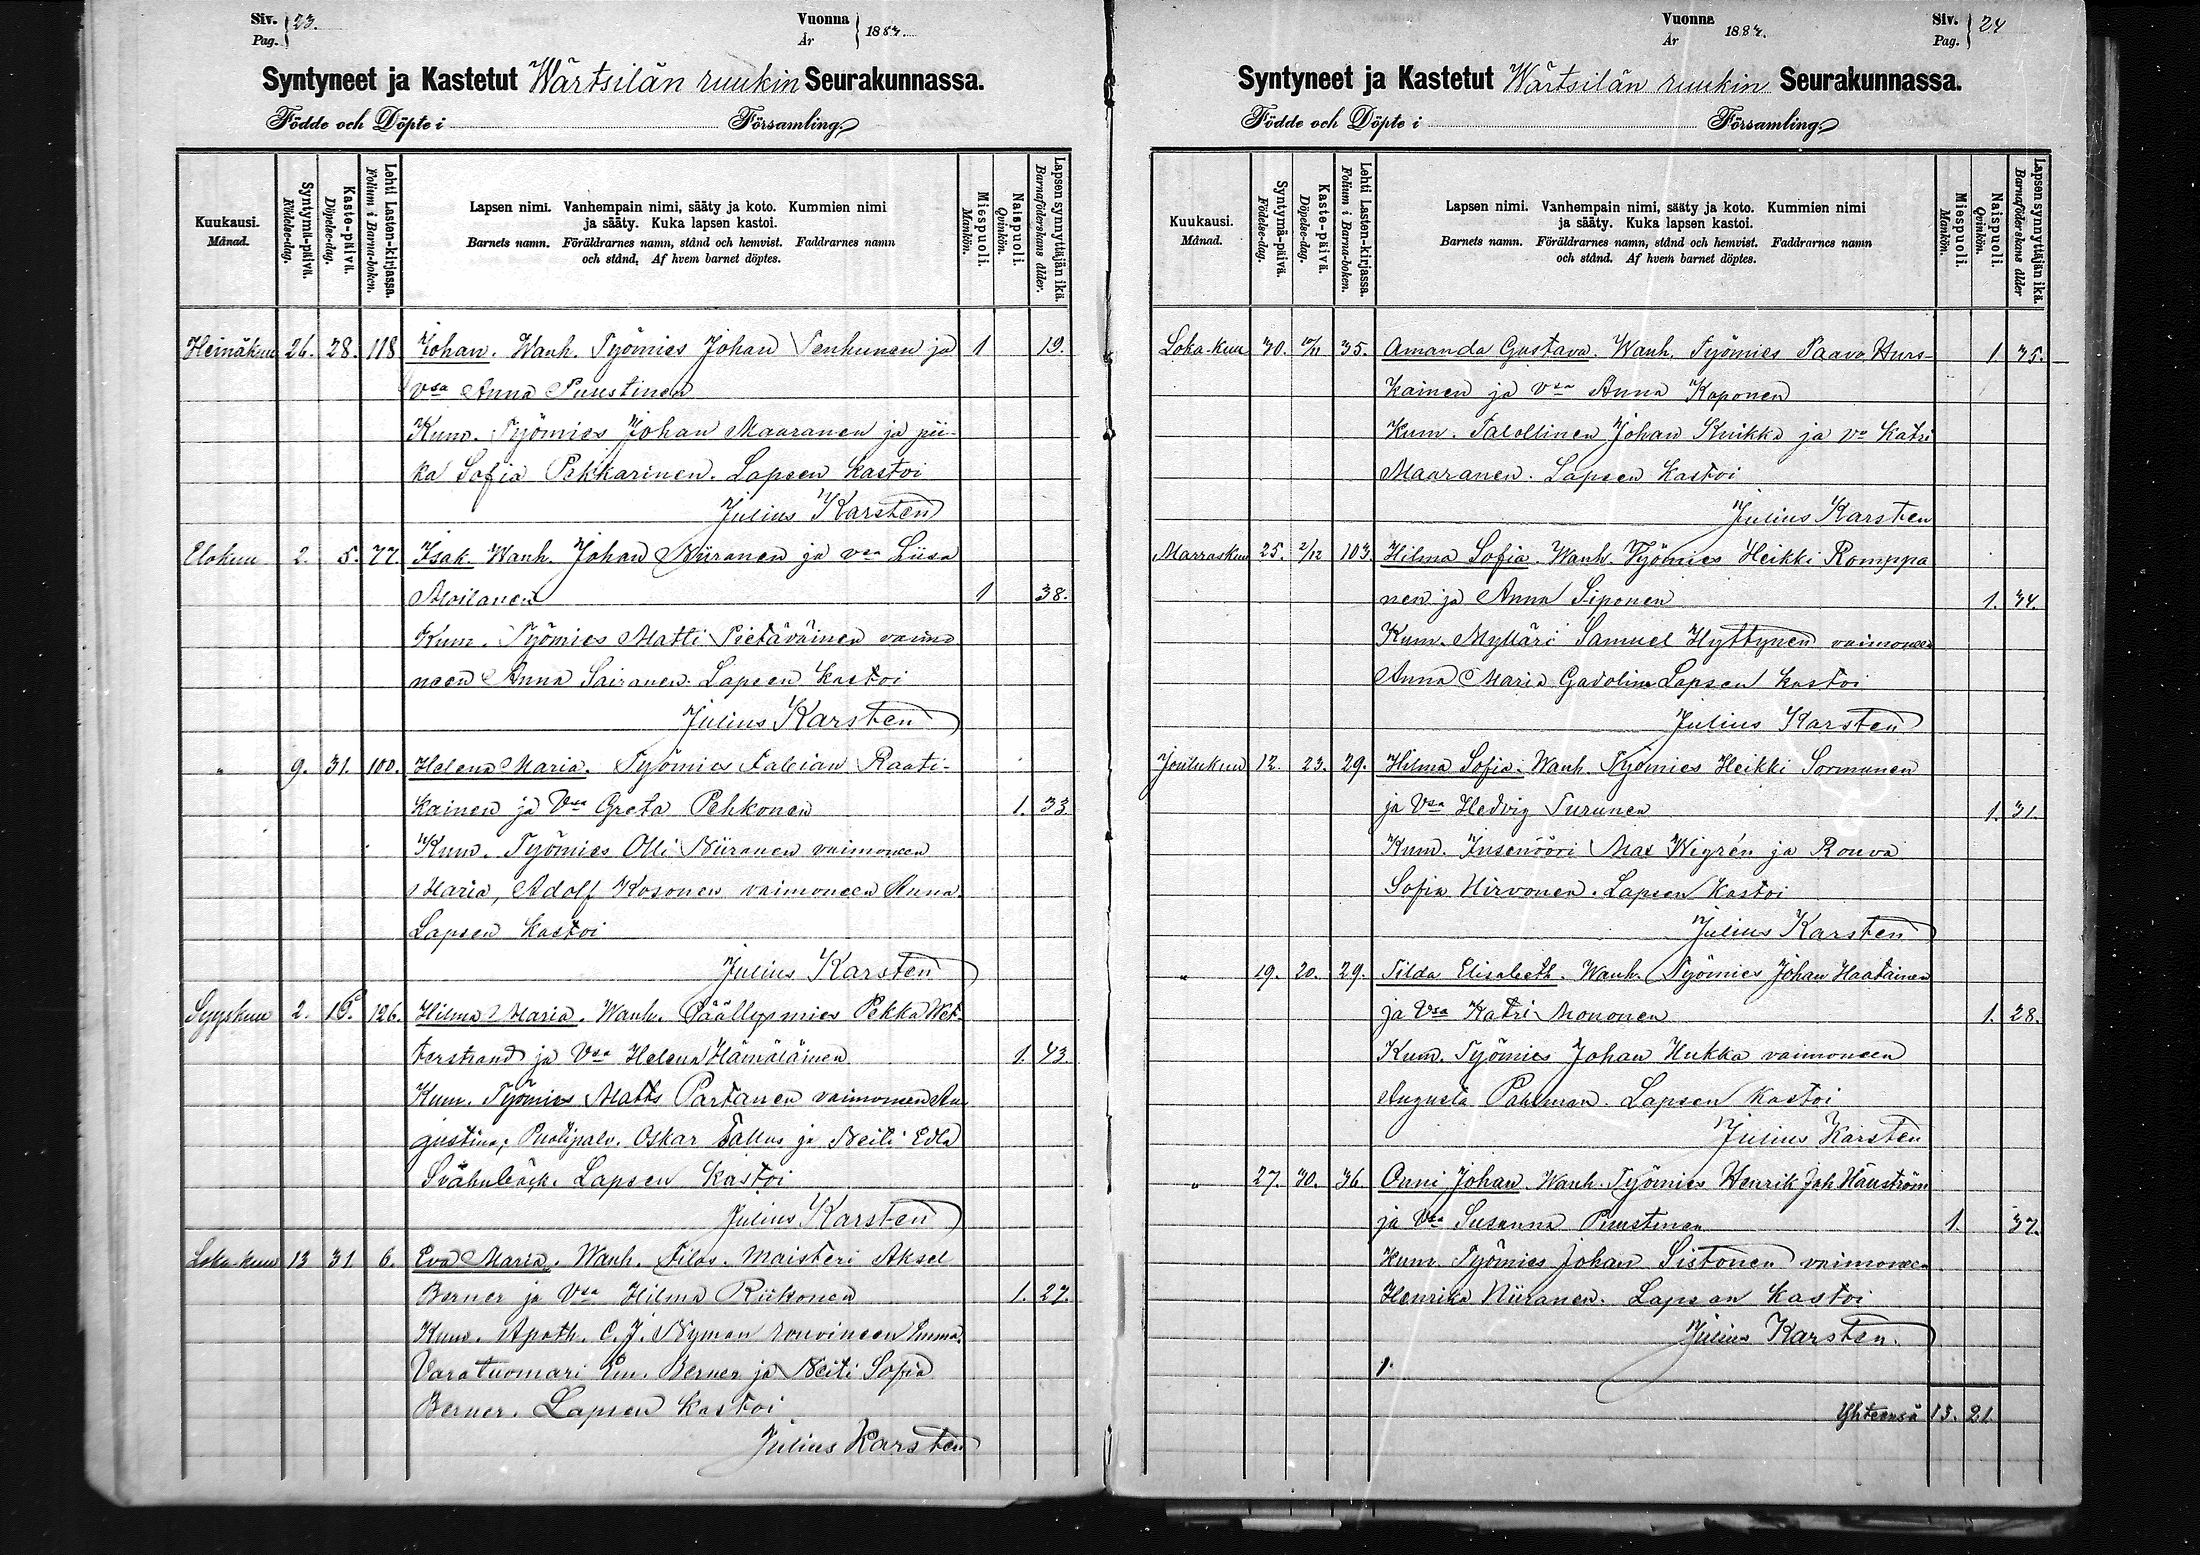 Siv. 23.
Pag.
Vuonna 1883.
År
Syntyneet ja Kastetut Wärtsilän ruukin Seurakunnassa.
Födde och Döpte i Församling.
Kuukausi. Månad.
Syntymä-päivä. Födelse-dag.
Kaste-päivä. Döpelse-dag.
Lehti Lasten-kirjassa. Folium i Barna-boken.
Lapsen nimi. Vanhempain nimi, sääty ja koto. Kummien nimi
ja sääty. Kuka lapsen kastoi.
Barnets namn. Föräldrarnes namn, stånd och hemvist. Faddrarnes namn
och stånd. Af hvem barnet döptes.
Miespuoli. Mankön.
Naispuoli. Qvinkön.
Lapsen synnyttäjän ikä. Barnaföderskans ålder.
Heinäkuu 26. 28. 118 Johan. Wanh. Työmies Johan Tenhunen ja 1 19.
vsa Anna Puustinen
Kum. Työmies Johan Maaranen ja pii-
ka Sofia Pekkarinen. Lapsen kastoi
Julius Karsten
Elokuu 2. 5. 77. Isak. Wanh. Johan Niiranen ja vsa Liisa
Moilanen 1 38.
Kum. Työmies Matti Pietäväinen vaimo
neen Anna Sairanen. Lapsen kastoi
Julius Karsten
" 9. 31. 100. Helena Maria. Työmies Fabian Raati-
kainen ja Vsa Greta Pehkonen 1. 33.
Kum. Työmies Olli Niiranen vaimoneen
Maria, Adolf Kosonen vaimoneen Anna.
Lapsen kastoi
Julius Karsten
Syyskuu 2. 126. Hilma Maria. Wanh. Päällysmies Pekka Wet-
terstrand ja Vsa Helena Hämäläinen 1. 43.
Kum. Työmies Matts Partanen vaimoneen Au
gustina, Puotipalv. Oskar Tallus ja Neiti Edla
Svahnbäck. Lapsen kastoi
Julius Karsten
Loka-kuu 13 31. 6. Eva Maria. Wanh. Filos. Maisteri Aksel
Berner ja Vsa Hilma Riikonen 1. 27.
Kum. Apoth. C. J. Nyman rouvineen Emma.
Varatuomari Em. Berner ja Neiti Sofia
Berner. Lapsen kastoi
Julius Karsten
Vuonna 1883.
År
Siv. 24
Pag.
Syntyneet ja Kastetut Wärtsilän ruukin Seurakunnassa.
Födde och Döpte i Församling.
Kuukausi. Månad.
Syntymä-päivä. Födelse-dag.
Kaste-päivä. Döpelse-dag.
Lehti Lasten-kirjassa. Folium i Barna-boken.
Lapsen nimi. Vanhempain nimi, sääty ja koto. Kummien nimi
ja sääty. Kuka lapsen kastoi.
Barnets namn. Föräldrarnes namn, stånd och hemvist. Faddrarnes namn
och stånd. Af hvem barnet döptes.
Miespuoli. Mankön.
Naispuoli. Qvinkön.
Lapsen synnyttäjän ikä. Barnaföderskans ålder
Loka-kuu 30. 35. Amanda Gustava. Wanh. Työmies Paavo Hurs- 1 35.
kainen ja vsa Anna Koponen
Kum. Talollinen Johan Kuikka ja va Katri
Maaranen. Lapsen kastoi
Julius Karsten
Marraskuu 25. 2/12 103. Hilma Sofia. Wanh. Työmies Heikki Romppa
nen ja Anna Siponen 1. 34.
Kum. Mylläri Samuel Hyttynen vaimoneen
Anna Maria Gadolin Lapsen kastoi
Julius Karsten
Joulukuu 12. 23. 29. Hilma Sofia. Wanh. Työmies Heikki Sormunen
ja Vsa Hedvig Turunen 1. 31.
Kum. Insenööri Max Wigrén ja Rouva
Sofia Hirvonen. Lapsen kastoi
Julius Karsten
" 19. 20. 29. Tilda Elisabeth. Wanh. Työmies Johan Haatainen
ja Vsa Katri Mononen 1. 28.
Kum. Työmies Johan Hukka vaimoneen
Augusta Pahlman. Lapsen kastoi
Julius Karsten
" 27. 30. 36. Onni Johan. Wanh. Työmies Henrik Joh Hänström
ja Vsa Susanna Puustinen 1. 37.
Kum Työmies Johan Sistonen vaimoneen
Henrika Niiranen. Lapsen kastoi
Julius Karsten.
1.
Yhteensä 13. 21.